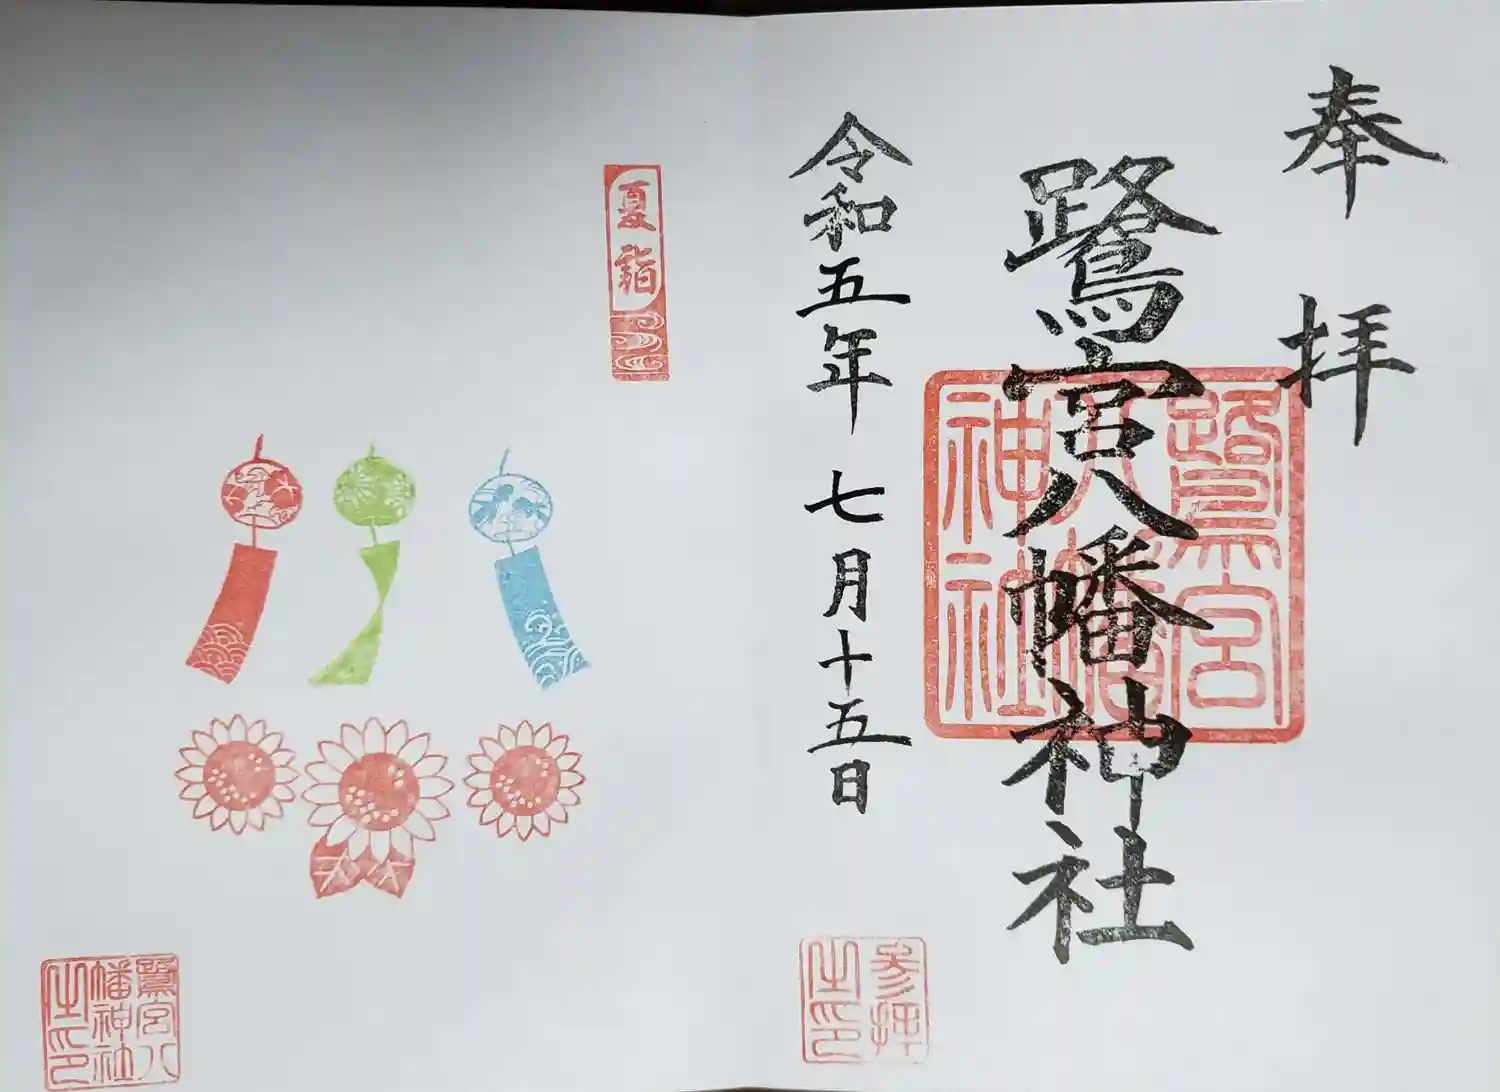 奉拝
鷺宮八幡神社
鷺宮
八幡
神社
令和五年 七月十五日
参拝
之印
夏詣
鷺宮八
幡神社
之印